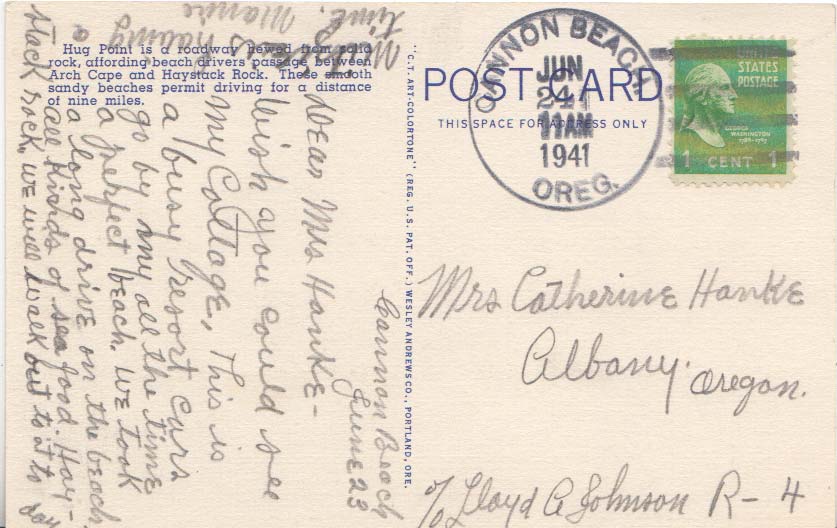 Hug Point is a roadway hewed from solid
rock, affording beach drivers passage between
Arch Cape and Haystack Rock. These smooth
sandy beaches permit driving for a distance
of nine miles.
"C.T. ART-COLORTONE" (REG. U.S. PAT. OFF.) WESLEY ANDREWS CO., PORTLAND, ORE.
POST CARD
THIS SPACE FOR ADDRESS ONLY
CANNON BEACH
JUN
24
11 AM
1941
OREG.
UNITED
STATES
POSTAGE
GEORGE
WASHINGTON
1789-1797
1 CENT 1
Cannon Beach
June 23
Dear Mrs Hanke-
Wish you could see
my Cottage, This is
a busy resort Cars
go by my all the time
a perfect beach. We took
a long drive on the beach
all kinds of sea food. Hay-
stack rock, we will walk out to it to day
having a
time.
Mamie
Mrs Catherine Hanke
Albany.
Oregon.
% Lloyd A Johnson R-4